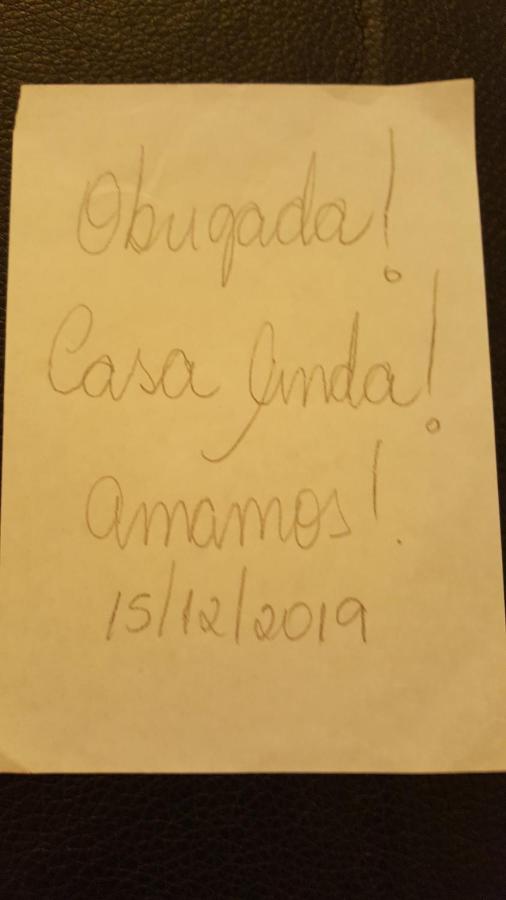 Obrigada!
Casa linda!
Amamos!
15/12/2019